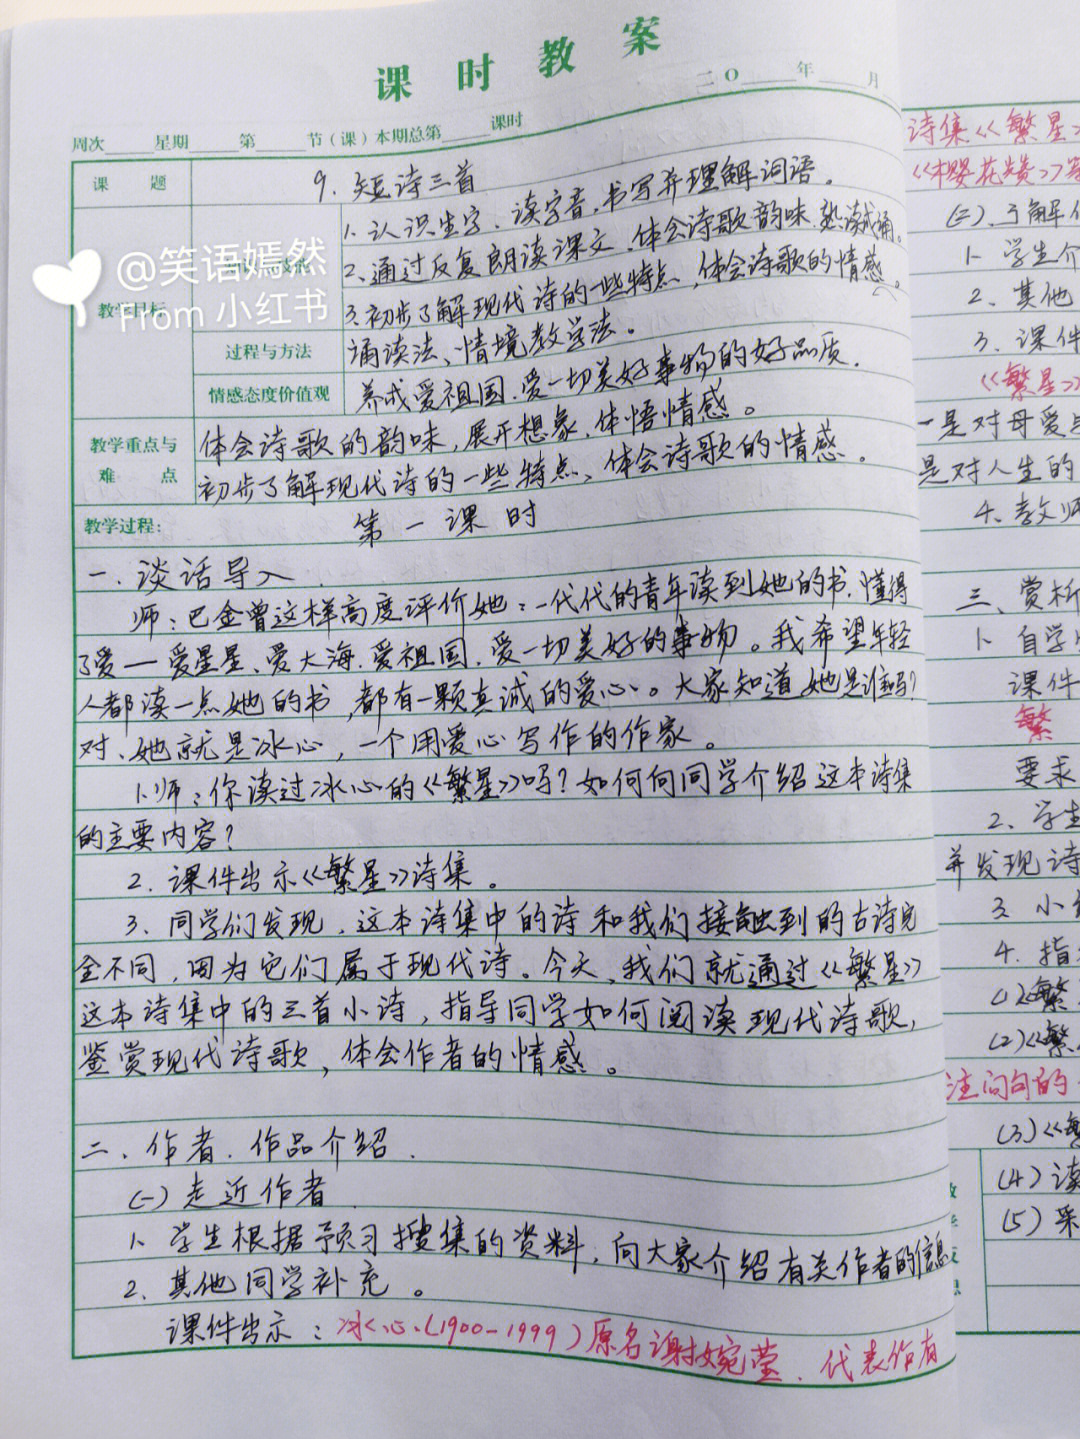 课时教案
二〇 年 月
周次 星期 第 节(课)本期总第 课时
课 题
9. 短诗三首
教学目标
1. 认识生字、读字音、书写并理解词语。
2. 通过反复朗读课文、体会诗歌韵味、熟读成诵。
3. 初步了解现代诗的一些特点、体会诗歌的情感。
过程与方法
诵读法、情境教学法。
情感态度价值观
养成爱祖国、爱一切美好事物的好品质.
教学重点与
难 点
体会诗歌的韵味,展开想象、体悟情感。
初步了解现代诗的一些特点、体会诗歌的情感。
教学过程:
第一课时
一、谈话导入.
师:巴金曾这样高度评价她:一代代的青年读到她的书,懂得
了爱—爱星星、爱大海、爱祖国、爱一切美好的事物。我希望年轻
人都读一点她的书,都有一颗真诚的爱心。大家知道她是谁吗?
对、她就是冰心,一个用爱心写作的作家。
1. 师:你读过冰心的《繁星》吗?如何向同学介绍这本诗集
的主要内容?
2. 课件出示《繁星》诗集。
3. 同学们发现,这本诗集中的诗和我们接触到的古诗完
全不同,因为它们属于现代诗。今天、我们就通过《繁星》
这本诗集中的三首小诗,指导同学如何阅读现代诗歌,
鉴赏现代诗歌,体会作者的情感。
二、作者、作品介绍.
(一)走近作者
1. 学生根据预习搜集的资料,向大家介绍有关作者的信息
2. 其他同学补充。
课件出示:冰心(1900-1999)原名谢婉莹、代表作有
诗集《繁星》
《樱花赞》等
(二)、了解
1. 学生介
2. 其他
3. 课件
《繁星》
一是对母爱与
是对人生的
4. 教师
三、赏析
1. 自学
课件
繁
要求
2. 学生
并发现诗
3. 小组
4. 指
(1)《繁
(2)《繁
注问句的
(3)《繁
(4)读
(5)采
@笑语嫣然
From 小红书